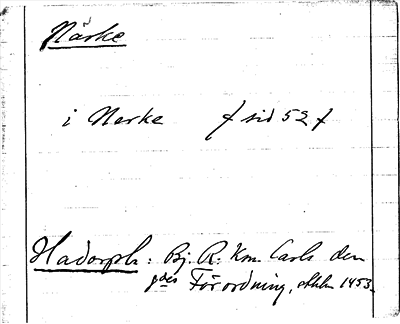 Närke
i Nerke f sid 52 f
Hadorph: Bj. R. Kon. Carls den
Förordning, 1453.